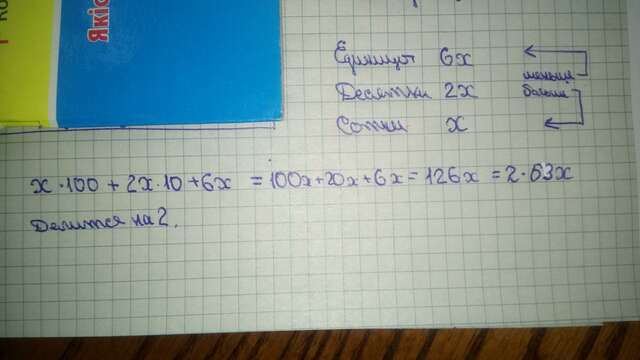 Якіс
Единицы 6x
меньше
Десятки 2x
больше
Сотни x
x·100 + 2x·10 + 6x = 100x + 20x + 6x = 126x = 2·63x
Делится на 2.